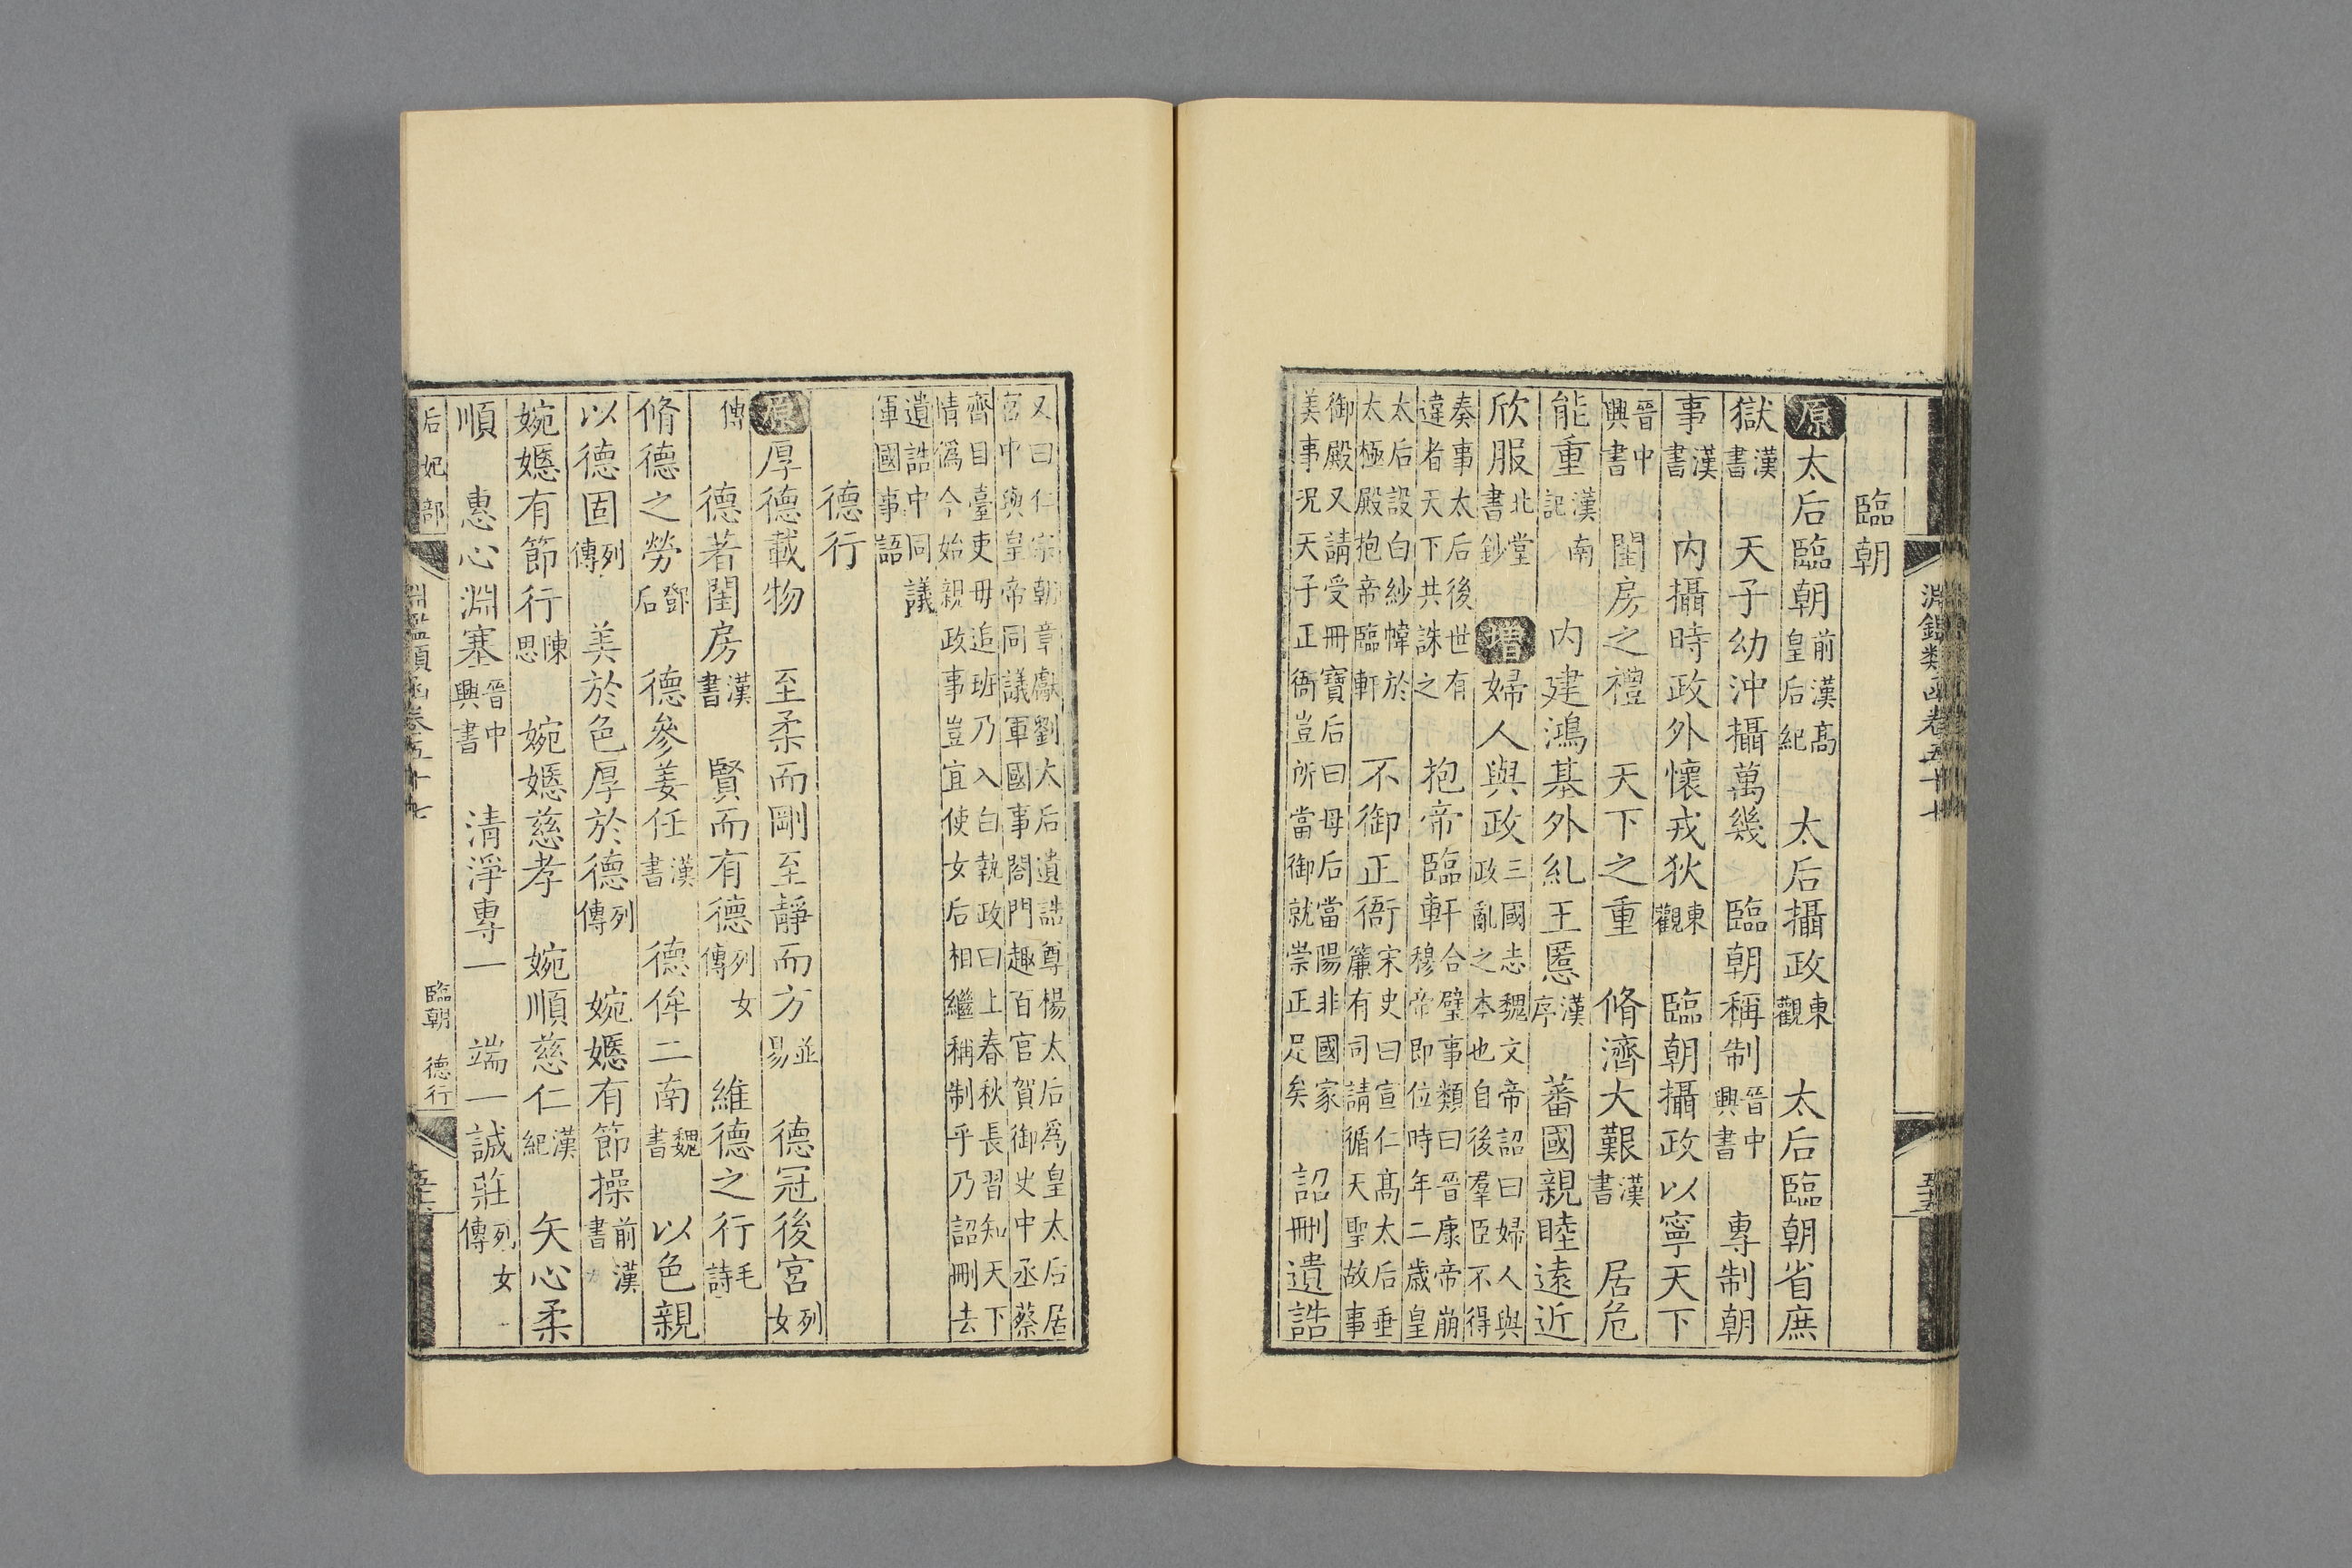 淵鑑類函卷五十七
臨朝
原太后臨朝前漢高皇后紀 太后攝政東觀 太后臨朝省庶
獄漢書 天子幼沖攝萬幾 臨朝稱制晉中興書 專制朝
事漢書 內攝時政外懷戎狄東觀 臨朝攝政以寧天下
晉中興書 閨房之禮 天下之重 脩濟大艱漢書 居危
能重漢南記 內建鴻基外糺王慝漢序 蕃國親睦遠近
欣服北堂書鈔 增婦人與政三國志魏文帝詔曰婦人與政亂之本也自後羣臣不得
奏事太后後世有違者天下共誅之 抱帝臨軒合璧事類曰晉康帝崩穆帝即位時年二歲皇
太后設白紗幃於太極殿抱帝臨軒 不御正衙宋史曰宣仁髙太后垂簾有司請循天聖故事
御殿又請受冊寶后曰母后當陽非國家美事況天子正衙豈所當御就崇正足矣 詔刪遺誥
又曰仁宗朝章獻劉太后遺誥尊楊太后爲皇太后居宮中與皇帝同議軍國事閤門趣百官賀御史中丞蔡
齊目臺吏毋追班乃入白執政曰上春秋長習知天下情僞今始親政事豈宜使女后相繼稱制乎乃詔刪去
遺誥中同議軍國事語
德行
原厚德載物 至柔而剛至靜而方並易 德冠後宮列女
傳 德著閨房漢書 賢而有德列女傳 維德之行毛詩
脩德之勞鄧后 德參姜任漢書 德侔二南魏書 以色親
以德固列傳 美於色厚於德列傳 婉嫕有節操前漢書
婉嫕有節行陳思 婉嫕慈孝 婉順慈仁漢紀 矢心柔
順 惠心淵塞晉中興書 清淨專一 端一誠莊列女傳
后妃部 淵鑑類函卷五十七 臨朝 德行